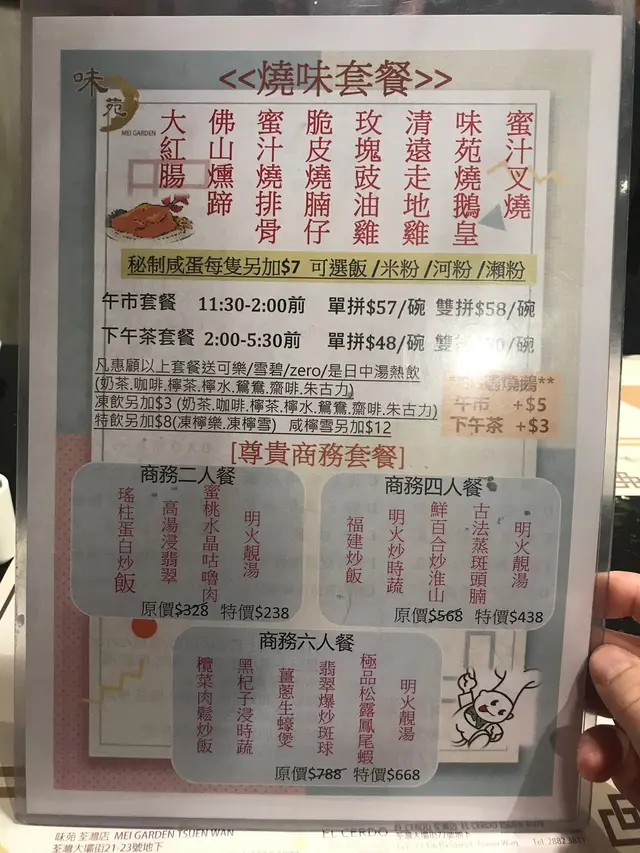 味苑
MEI GARDEN
<<燒味套餐>>
蜜汁叉燒
味苑燒鵝皇
清遠走地雞
玫瑰豉油雞
脆皮燒腩仔
蜜汁燒排骨
佛山燻蹄
大紅腸
秘制咸蛋每隻另加$7 可選飯/米粉/河粉/瀨粉
午市套餐 11:30-2:00前 單拼$57/碗 雙拼$58/碗
下午茶套餐 2:00-5:30前 單拼$48/碗
凡惠顧以上套餐送可樂/雪碧/zero/是日中湯熱飲
(奶茶.咖啡.檸茶.檸水.鴛鴦.齋啡.朱古力)
凍飲另加$3 (奶茶.咖啡.檸茶.檸水.鴛鴦.齋啡.朱古力)
特飲另加$8(凍檸樂.凍檸雪) 咸檸雪另加$12
燒鵝**
午市 +$5
下午茶 +$3
[尊貴商務套餐]
商務二人餐
明火靚湯
蜜桃水晶咕嚕肉
高湯浸翡翠
瑤柱蛋白炒飯
原價$328 特價$238
商務四人餐
明火靚湯
古法蒸斑頭腩
鮮百合炒淮山
明火炒時蔬
福建炒飯
原價$568 特價$438
商務六人餐
明火靚湯
極品松露鳳尾蝦
翡翠爆炒斑球
薑蔥生蠔煲
黑杞子浸時蔬
欖菜肉鬆炒飯
原價$788 特價$668
味苑 荃灣店 MEI GARDEN TSUEN WAN
荃灣大壩街21-23號地下
EL CERDO
Tel: 2882 3811